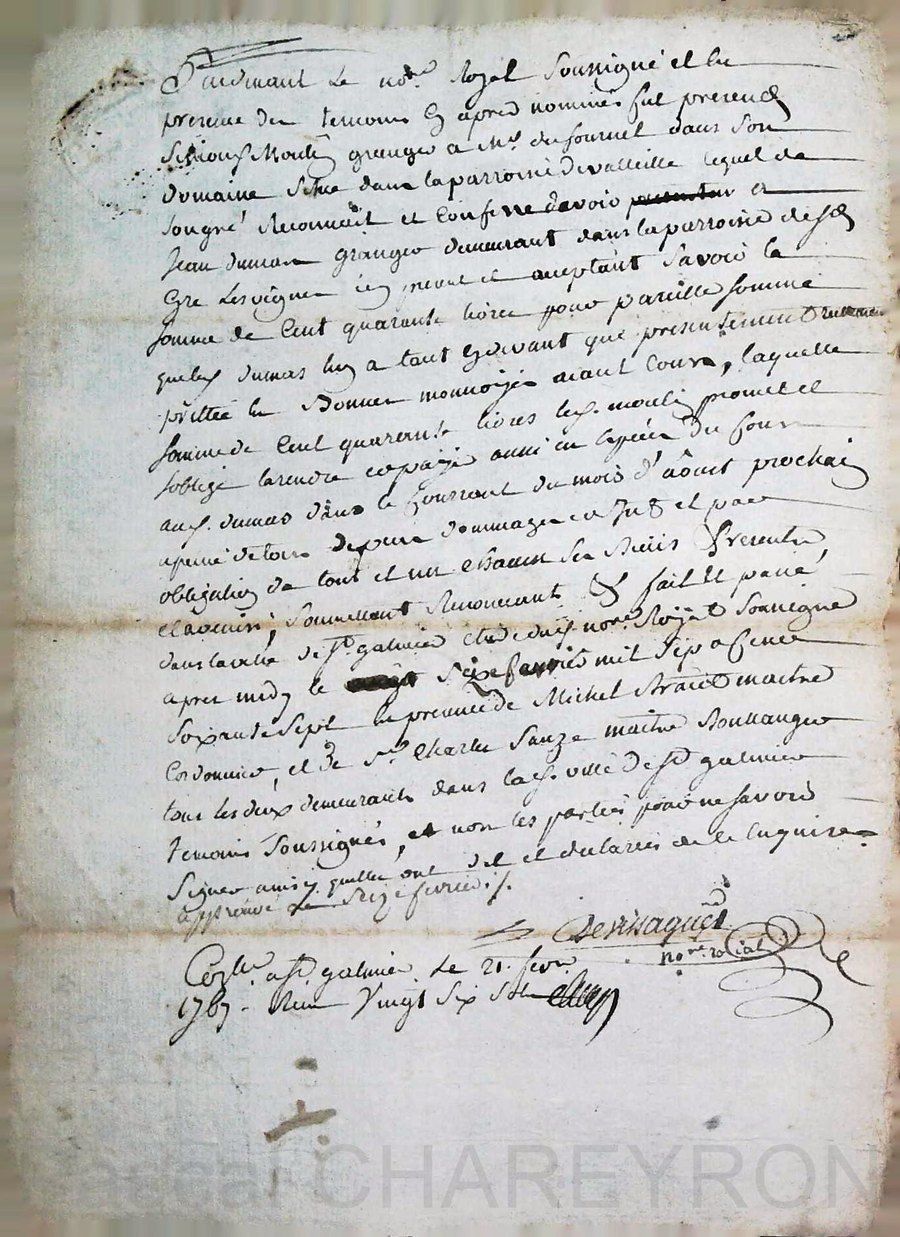 Pardevant Le no.re Royal Soussigné et En
presence des temoins Cy aprés nommés fut present
Simond Moulin granger a Mr. du fournel dans Son
domaine Situé dans la parroisse de valleille lequel de
Son gré Reconnoit et Confesse devoir et
Jean dumas granger demeurant dans la parroisse de St
Cyre Les vignes icy present et acceptant Savoir la
Somme de Cent quarante livres pour pareille Somme
que led. dumas luy a tant Cydevant que presentement reellement
prettée En Bonnes monnoyes aiant Cours, laquelle
Somme de Cent quarante livres led. moulin promet et
s'oblige la rendre et payer aussi en espèces du Cours
aud. dumas dans le Courrant du mois d'aoust prochain
a peine de tous depens dommages et et par
obligation de tous et un chacun Ses Biens Presents
et avenirs, Soumettant Renonceants & fait Et passé
dans la ville de St. galmier Etude dud. no.re Royal Soussigné
apres midy le Seize fevrier mil Sept Cents
Soixante Sept en presence de Michel maitre
Cordonnier, et de Sr. Charles Sauze maitre Boullanger
tous les deux demeurants dans lad. ville de St galmier
temoins Soussignés, et non les parties pour ne Savoir
Signer ainsy quelles ont dit et declarés de ce Enquises
approuvé Le Seize fevrier ./.
no.re roial
Con.lle a St galmier Le 21. fevr.
1767. Reçu Vingt Six Sols
Pascal CHAREYRON